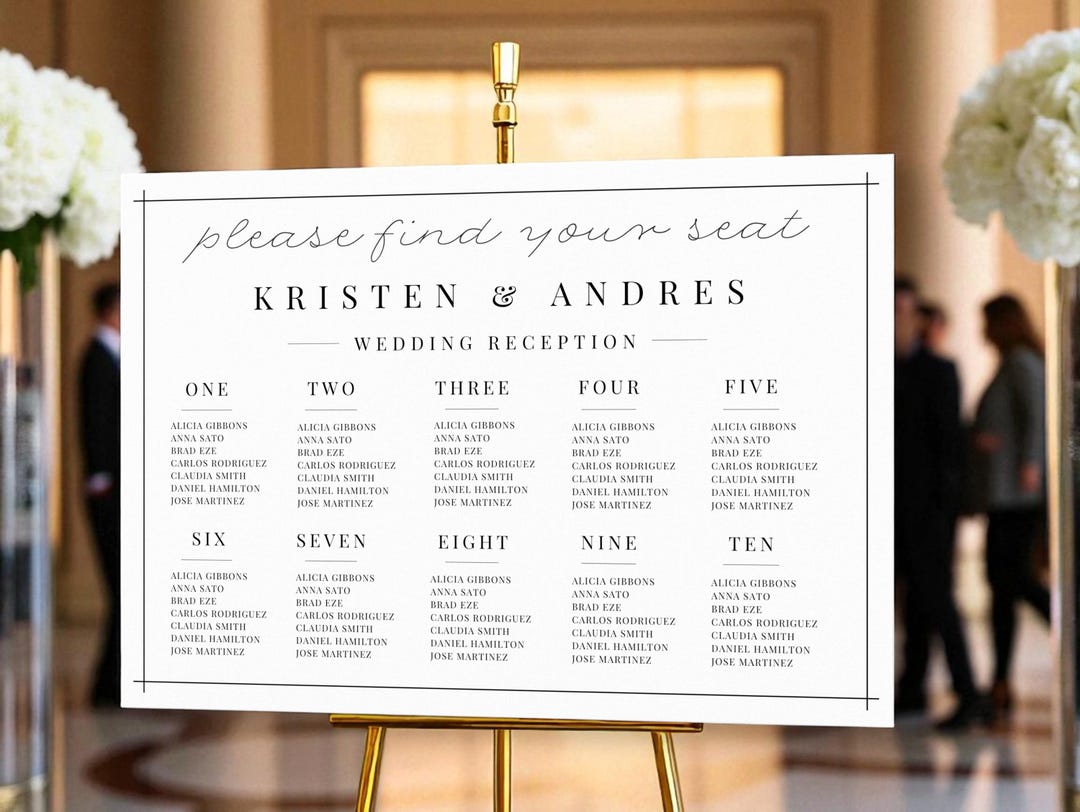 please find your seat
KRISTEN & ANDRES
WEDDING RECEPTION
ONE
ALICIA GIBBONS
ANNA SATO
BRAD EZE
CARLOS RODRIGUEZ
CLAUDIA SMITH
DANIEL HAMILTON
JOSE MARTINEZ
TWO
ALICIA GIBBONS
ANNA SATO
BRAD EZE
CARLOS RODRIGUEZ
CLAUDIA SMITH
DANIEL HAMILTON
JOSE MARTINEZ
THREE
ALICIA GIBBONS
ANNA SATO
BRAD EZE
CARLOS RODRIGUEZ
CLAUDIA SMITH
DANIEL HAMILTON
JOSE MARTINEZ
FOUR
ALICIA GIBBONS
ANNA SATO
BRAD EZE
CARLOS RODRIGUEZ
CLAUDIA SMITH
DANIEL HAMILTON
JOSE MARTINEZ
FIVE
ALICIA GIBBONS
ANNA SATO
BRAD EZE
CARLOS RODRIGUEZ
CLAUDIA SMITH
DANIEL HAMILTON
JOSE MARTINEZ
SIX
ALICIA GIBBONS
ANNA SATO
BRAD EZE
CARLOS RODRIGUEZ
CLAUDIA SMITH
DANIEL HAMILTON
JOSE MARTINEZ
SEVEN
ALICIA GIBBONS
ANNA SATO
BRAD EZE
CARLOS RODRIGUEZ
CLAUDIA SMITH
DANIEL HAMILTON
JOSE MARTINEZ
EIGHT
ALICIA GIBBONS
ANNA SATO
BRAD EZE
CARLOS RODRIGUEZ
CLAUDIA SMITH
DANIEL HAMILTON
JOSE MARTINEZ
NINE
ALICIA GIBBONS
ANNA SATO
BRAD EZE
CARLOS RODRIGUEZ
CLAUDIA SMITH
DANIEL HAMILTON
JOSE MARTINEZ
TEN
ALICIA GIBBONS
ANNA SATO
BRAD EZE
CARLOS RODRIGUEZ
CLAUDIA SMITH
DANIEL HAMILTON
JOSE MARTINEZ